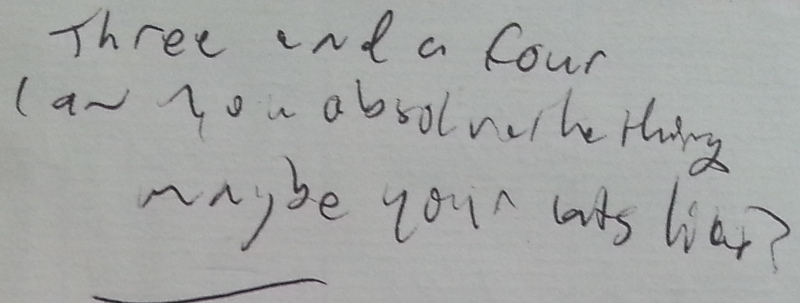 Three and a four
Can you absolve the thing
maybe your cats liar?